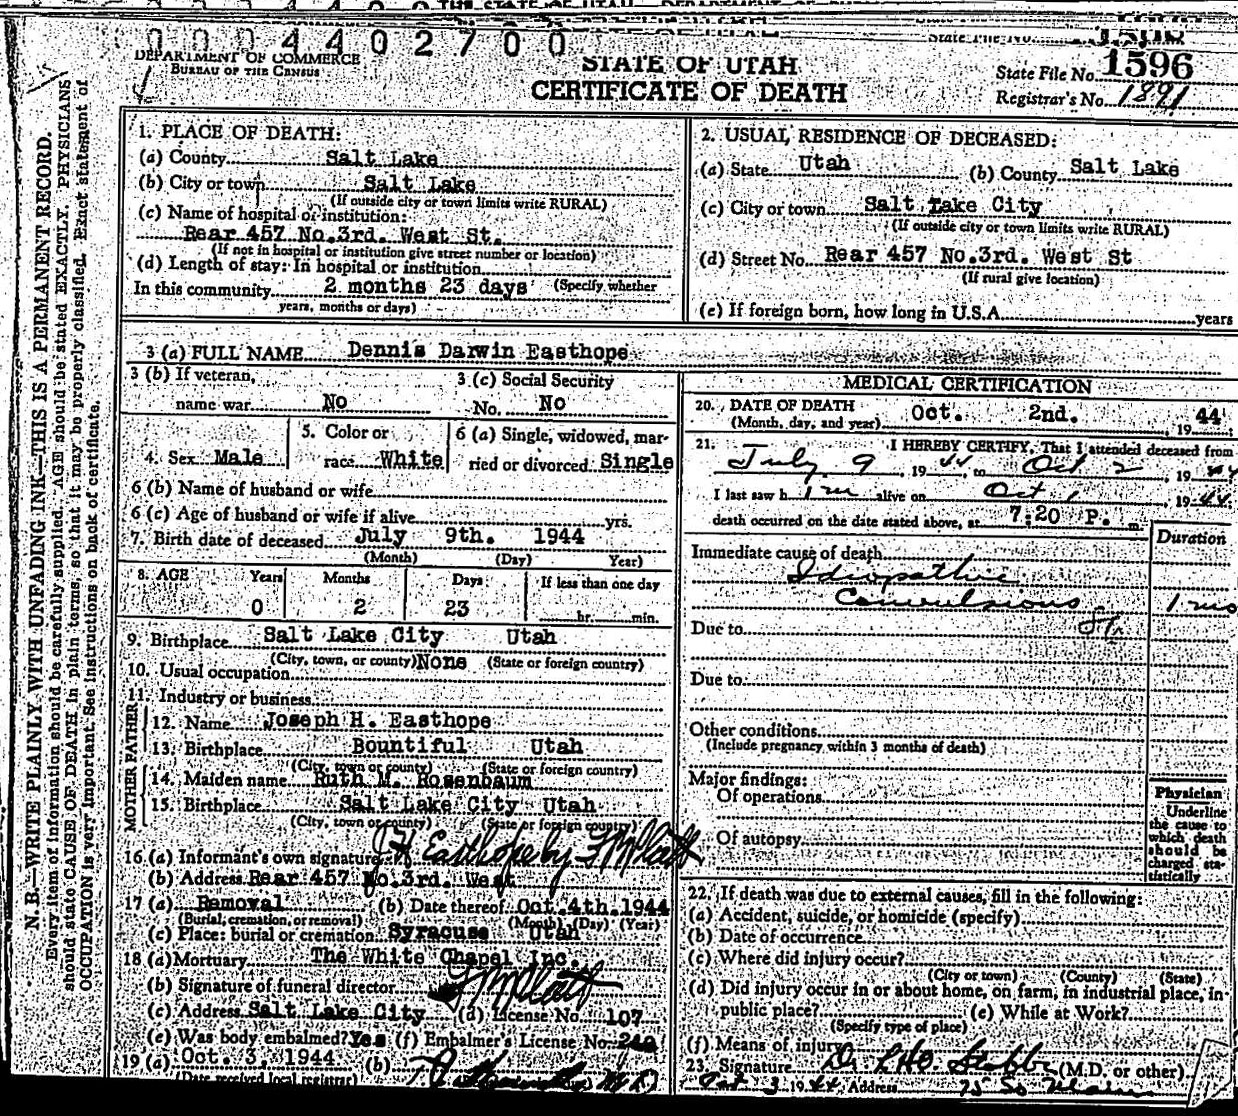 0 0 0 4 4 0 2 7 0 0
DEPARTMENT OF COMMERCE
BUREAU OF THE CENSUS
STATE OF UTAH
CERTIFICATE OF DEATH
State File No. 1596
Registrar's No. 1891
N. B.—WRITE PLAINLY WITH UNFADING INK—THIS IS A PERMANENT RECORD.
Every item of information should be carefully supplied. AGE should be stated EXACTLY. PHYSICIANS
should state CAUSE OF DEATH in plain terms, so that it may be properly classified. Exact statement of
OCCUPATION is very important. See instructions on back of certificate.
1. PLACE OF DEATH:
(a) County Salt Lake
(b) City or town Salt Lake
(If outside city or town limits write RURAL)
(c) Name of hospital or institution:
Rear 457 No.3rd. West St.
(If not in hospital or institution give street number or location)
(d) Length of stay: In hospital or institution
In this community 2 months 23 days (Specify whether
years, months or days)
2. USUAL RESIDENCE OF DECEASED:
(a) State Utah (b) County Salt Lake
(c) City or town Salt Lake City
(If outside city or town limits write RURAL)
(d) Street No. Rear 457 No.3rd. West St
(If rural give location)
(e) If foreign born, how long in U.S.A. years
3 (a) FULL NAME Dennis Darwin Easthope
3 (b) If veteran, name war No
3 (c) Social Security No. No
4. Sex Male
5. Color or race White
6 (a) Single, widowed, married or divorced Single
6 (b) Name of husband or wife
6 (c) Age of husband or wife if alive yrs.
7. Birth date of deceased July 9th. 1944
(Month) (Day) Year)
8. AGE Years Months Days If less than one day
0 2 23 hr. min.
9. Birthplace Salt Lake City Utah
(City, town, or county) (State or foreign country)
10. Usual occupation None
11. Industry or business
FATHER
12. Name Joseph H. Easthope
13. Birthplace Bountiful Utah
(City, town or county) (State or foreign country)
MOTHER
14. Maiden name Ruth M. Rosenbaum
15. Birthplace Salt Lake City Utah
(City, town or county) (State or foreign country)
16 (a) Informant's own signature Easthope by F M Platt
(b) Address Rear 457 No.3rd. West
17 (a) Removal (b) Date thereof Oct.4th.1944
(Burial, cremation, or removal) (Month) (Day) (Year)
(c) Place: burial or cremation Syracuse Utah
18 (a) Mortuary The White Chapel Inc.
(b) Signature of funeral director F M Platt
(c) Address Salt Lake City (d) License No. 107
(e) Was body embalmed? Yes (f) Embalmer's License No.
19 (a) Oct. 3, 1944 (b) M D
(Date received local registrar)
MEDICAL CERTIFICATION
20. DATE OF DEATH Oct. 2nd. , 19 44
(Month, day, and year)
21. I HEREBY CERTIFY, That I attended deceased from
July 9, 19 44 to Oct 2, 19 44
I last saw h im alive on Oct 1, 19 44
death occurred on the date stated above, at 7:20 P. m.
Duration
Immediate cause of death
Idiopathic
Convulsions 1 mo
Due to
Due to
Other conditions
(Include pregnancy within 3 months of death)
Major findings:
Of operations
Of autopsy
Physician
Underline
the cause to
which death
should be
charged sta-
tistically
22. If death was due to external causes, fill in the following:
(a) Accident, suicide, or homicide (specify)
(b) Date of occurrence
(c) Where did injury occur?
(City or town) (County) (State)
(d) Did injury occur in or about home, on farm, in industrial place, in
public place? (e) While at Work?
(Specify type of place)
(f) Means of injury
23. Signature Dr. (M.D. or other)
Oct 3 19 44 Address 75 So Main